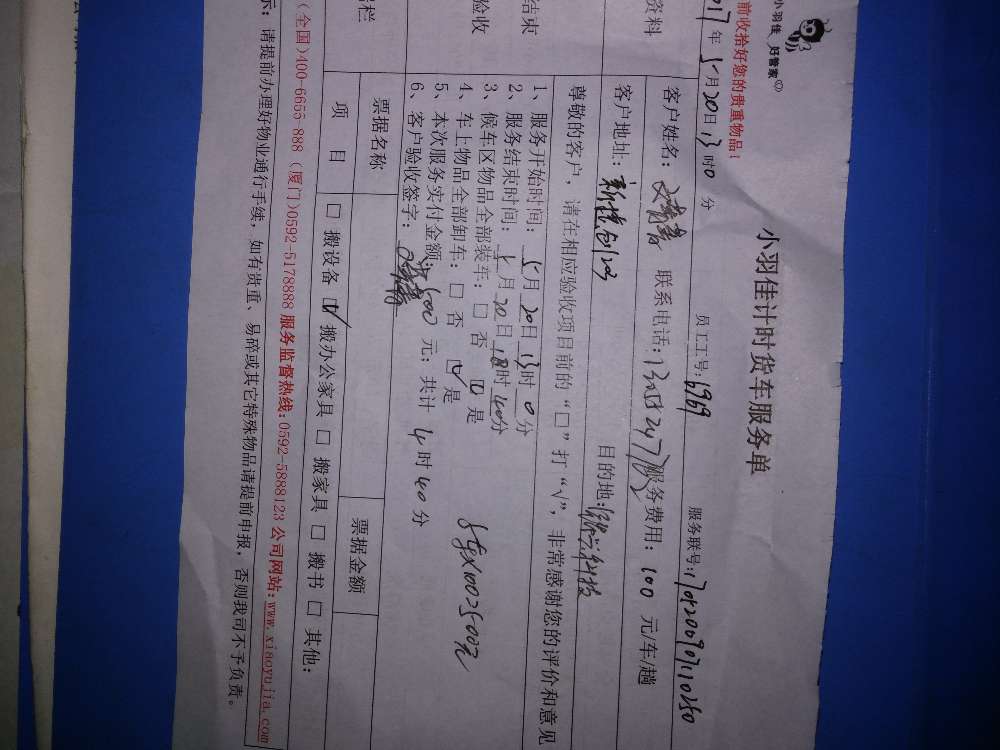 小羽佳 好管家
前收拾好您的贵重物品！
小羽佳计时货车服务单
017年5月20日13时0分 员工工号：6969 服务联号：
资料
客户姓名： 联系电话： 服务费用：100 元/车/趟
客户地址： 目的地：
尊敬的客户，请在相应验收项目前的“□”打“√”，非常感谢您的评价和意见
结束
验收
1、服务开始时间：5月20日13时0分
2、服务结束时间：5月20日18时40分
3、候车区物品全部装车：□否 ☑是
4、车上物品全部卸车：□否 ☑是
5、本次服务实付金额：500元；共计 时40分
5趟x100=500元
6、客户验收签字：
据栏
票据名称 票据金额
项目 □搬设备 ☑搬办公家具 □搬家具 □搬书 □其他：
(全国)400-6655-888 (厦门)0592-5178888 服务监督热线:0592-5888123 公司网站:www.xiaoyujia.com
示：请提前办理好物业通行手续，如有贵重、易碎或其它特殊物品请提前申报，否则我司不予负责。